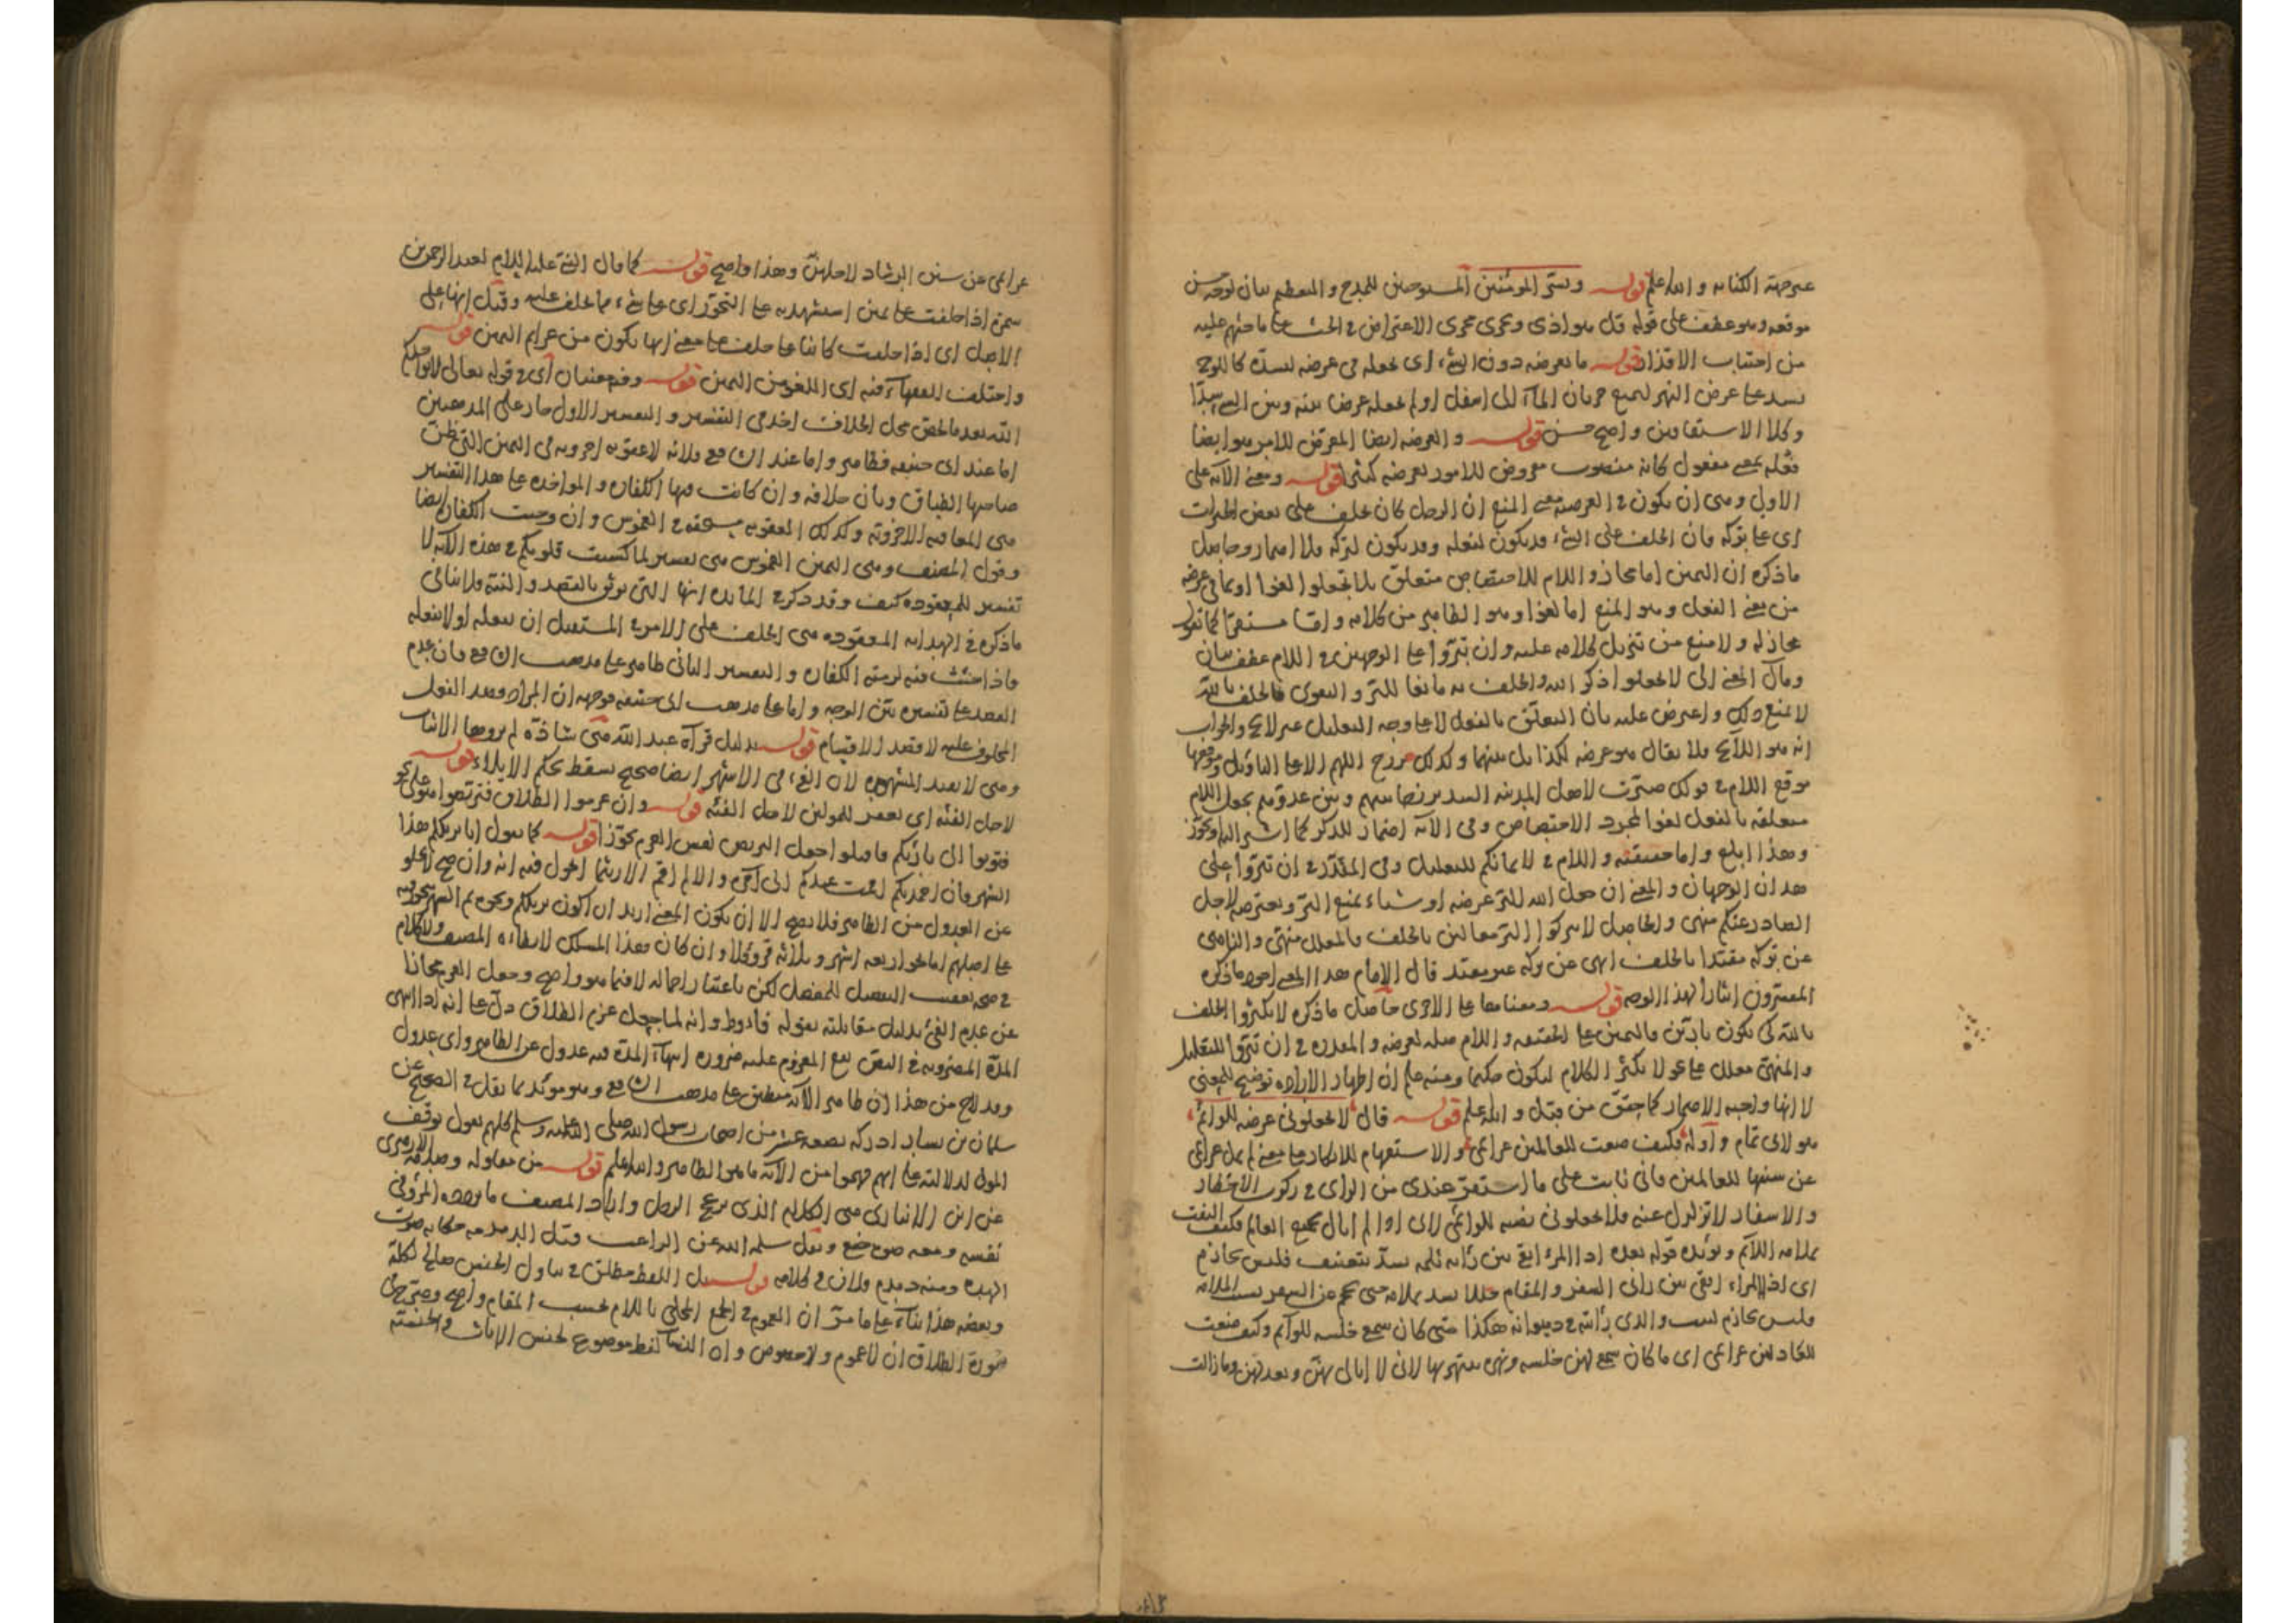 عن جهة الكناية والله اعلم قوله وبشر المومنين المستوجبين للمدح والتعظيم بيان لوجه حسن
موقعه وهو عطف على قوله قل هو اذى وتجرى مجرى الاعتراض في الحث على ما حثهم عليه
من اجتناب الاقذار قوله ما تعرضه دون الشيء اى تجعله في عرضه لسده كاللوح
يسد على عرض النهر ليمنع جريان الماء الى اسفل او لم تجعله عرضا بينه وبين الشيء سدا
وكلا الاستقاقين واضح حسن قوله والعرضة ايضا المعرض للامر هو ايضا
فعلة بمعنى مفعول كانه منصوب معروض للامور تعرضه قوله ومعنى الآية على
الاول وهي ان يكون في العرضة معنى المنع ان الرجل كان يحلف على بعض الخيرات
اى على تركه فان الحلف على الشيء قد يكون لفعله وقد يكون لتركه فلا اضمار وحاصل
ما ذكره ان اليمين اما مجاز واللام للاختصاص متعلق بلا تجعلوا لغوا او بما في عرضة
من معنى الفعل وهو المنع اما لغوا وهو الظاهر من كلامه واما مستقرا كما تقول
مجاز له ولا منع من تنزيل كلامه عليه وان تبروا على الوجهين في اللام عطف بيان
ومآل المعنى الى لا تجعلوا ذكر الله والحلف به مانعا للبر والتقوى فالحلف بالله
لا يمنع ذلك واعترض عليه بان التعلق بالفعل لا على وجه التعليل غير لايح والجواب
انه هو اللايح فلا يقال هو عرضة لكذا بل بينهما وكذلك اللهم الا على التاويل ووقوعها
موقع اللام في قولك صيرت لاهل المدينة السد بينهم وبين عدوهم بجعل اللام
متعلقة بالفعل لغوا لمجرد الاختصاص وفي الآية اضمار للذكر كما اشير اليه وتجوز
وهذا ابلغ واما حقيقته واللام في لايمانكم للتعليل وفي المقدر في ان تبروا على
هذان الوجهان والمعنى ان جعل الله للبر عرضة او شيئا يمنع البر ويعترضه لاجل
الصادر عنكم منهى والحاصل لا تتركوا البر معللين بالحلف فالمعلل منهى والناهى
عن تركه مقيدا بالحلف نهى عن تركه غير مقيد قال الامام هذا المعنى اجود ما ذكره
المفسرون ايثارا لهذا الوجه قوله ومعناها على الاخرى حاصل ما ذكره لا تكثروا الحلف
بالله كى تكون بارين فاليمين على الحقيقة واللام صلة لعرضة والمقدرة في ان تبروا للتعليل
والمنهى معلل على نحو لا تكثر الكلام لتكون حكيما ومنه علم ان اظهار الارادة توضيح للمعنى
لا انها واجبة الاضمار كما حقق من قبل والله اعلم قوله قال لا تجعلونى عرضة للوائم
هو لابى تمام واوله فكيف صغت للعالمين عزائمى والاستفهام للانكار على معنى لم تمل عزائمى
عن سننها للعالمين فانى ثابت على ما استقر عندى من الراى في ركوب الاخطار
والاسفار لا تزلزل عنه فلا تجعلونى نصبة للوائم لانى اذا لم ابال بجميع العالم فكيف التفت
بملامة اللائم ويؤيده قوله بعده اذا المرء ابقى بين رأييه ثلمة تسد بتعنيف فليس بحازم
اى اذا المرء ابقى بين رائى السفر والمقام خللا يسد بملامة حتى يحجم عن السفر بسبب الملامة
فليس بحازم لبيب والذى رأيته في ديوانه هكذا متى كان سمعى خلسة للوائم وكيف صغت
للعاذلين عزائمى اى ما كان سمعى لهن خلسة ونهزة ينتهزنها لانى لا ابالى بهن وبعذلهن وما زالت
عزائمى عن سنن الرشاد لاجلهن وهذا واضح قوله كما قال النبي عليه السلام لعبد الرحمن بن
سمرة اذا حلفت على يمين استشهد به على التجوز اى على شيء مما يحلف عليه وقيل انها على
الاصل اى اذا حلفت كائنا على حلف على معنى انها تكون من عزائم اليمين قوله
واختلف الفقهاء فيه اى اللغو من اليمين قوله وفيه معنيان اى في قوله تعالى لا يؤاخذكم
الله بعد ما لخص محل الخلاف اخذ في التفسير والتفسير الاول جار على المذهبين
اما عند ابى حنيفة فظاهر واما عند الشافعى فلانه لا عقوبة اخروية في اليمين التى ظن
صاحبها الطباق وبان خلافه وان كانت فيها الكفارة والمواخذة على هذا التفسير
هى المعاقبة الاخروية وكذلك العقوبة مستحقة في الغموس وان وجبت الكفارة ايضا
وقول المصنف وهى اليمين الغموس هى تفسير لما كسبت قلوبكم في هذه الآية لا
تفسير للمعقودة كيف وقد ذكر في المائدة انها التى توثق بالقصد والنية فلا ينافى
ما ذكره في الهداية المعقودة هى الحلف على الامر في المستقبل ان يفعله او لا يفعله
فاذا حنث فيه لزمته الكفارة والتفسير الثانى ظاهر على مذهب الشافعى فان عدم
القصد على تفسيره بين الوجه واما على مذهب ابى حنيفة فوجهه ان المراد قصد الفعل
المحلوف عليه لا قصد الاقسام قوله بدليل قراءة عبد الله هى شاذة لم يروها الاثبات
وهى لا تفيد المشهورة لان الفيء في الاشهر ايضا صحيح يسقط بحكم الايلاء قوله
لاجل الفئة اى يغفر للمولين لاجل الفئة قوله وان عزموا الطلاق فتربصوا هو على نحو
فتوبوا الى بارئكم فاقتلوا جعل التربص نفس العزم تجوزا قوله كما تقول انا نزيلكم هذا
الشهر فان احمدتكم اقمت عندكم الى آخره والا لم اقم الا ريثما اتحول فيه انه وان صح لا يخلو
عن العدول من الظاهر فلا يصح الا ان يكون المعنى اريد ان اكون نزيلكم ونحوه ثم الشهر تجوز به
على اصلهم اما نحو اربعة اشهر وثلاثة قروء فلا وان كان هذا المسلك لارتضاه المصنف ولا كلام
في صحة تعقيب التفصيل للمفصل لكن باعتبار اجماله لا فيما هو واضح وجعل العزم مجازا
عن عدم الفيء بدليل مقابلته بقوله فان فاؤا وانه لما جعل عزم الطلاق دل على انه اذا انتهى
المدة المضروبة في النص يقع المعزوم عليه ضرورة انتهاء المدة فيه عدول عن الظاهر واى عدول
وقد لاح من هذا ان ظاهر الآية منطبق على مذهب الشافعى وهو مؤيد بما نقل في الصحيح عن
سليمان بن يسار ادركت بضعة عشر من اصحاب رسول الله صلى الله عليه وسلم كلهم يقول بوقف
المولى لدلالته على انهم فهموا من الآية ما هو الظاهر والله اعلم قوله من مقاولة
عن ابن الانبارى هى الكلام الذى يزعج الرجل واراد المصنف ما يردده المرء في
نفسه ومعه صوت خفى ونقل سلمه الله عن الراغب وقيل الدمدمة حكاية صوت
الهدة ومنه دمدم فلان في كلامه قوله بل اللفظ مطلق في تناول الجنس صالح لكله
وبعضه هذا بناء على ما مر ان العموم في الجمع المحلى باللام بحسب المقام واضح وصرح في
سورة الطلاق ان لا عموم ولا خصوص وان النساء لفظ موضوع لجنس الاناث والجنسية